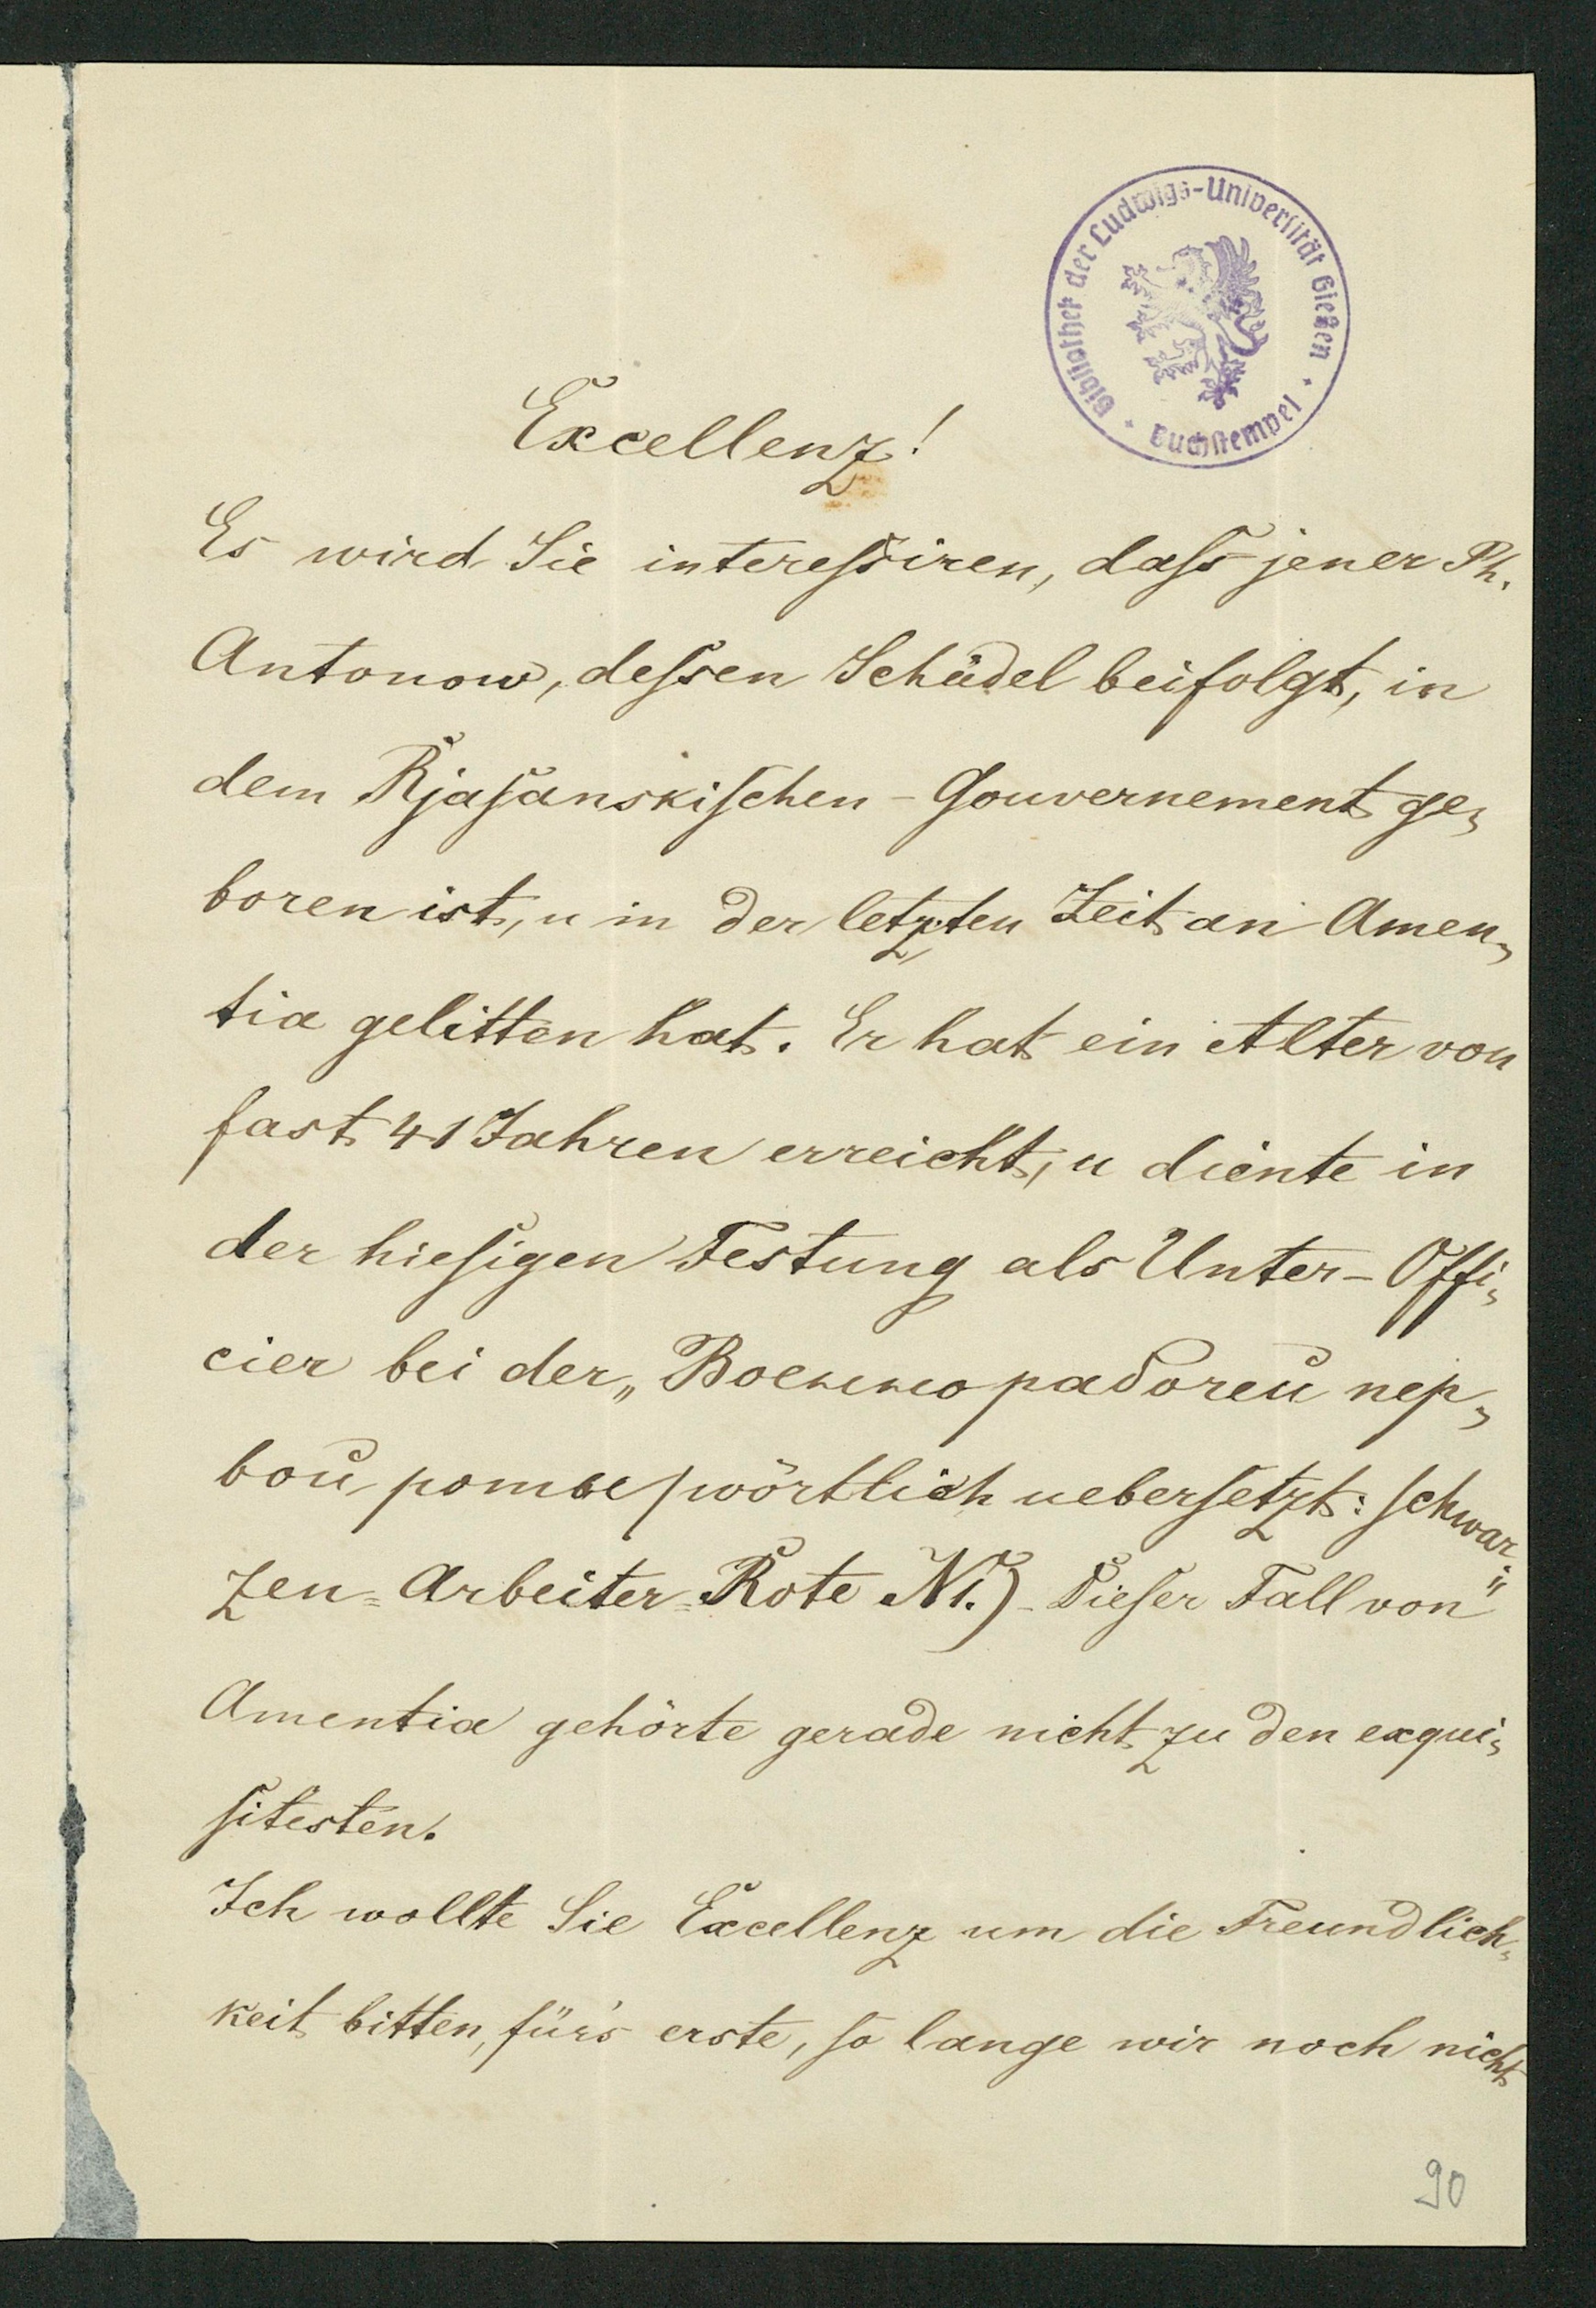 Bibliothek der Ludwigs-Universität Gießen · Buchstempel ·
Excellenz!
Es wird Sie interessiren, dass jener Ph.
Antonow, dessen Schädel beifolgt, in
dem Rjasanskischen-Gouvernement ge-
boren ist, u in der letzten Zeit an Amen-
tia gelitten hat. Er hat ein Alter von
fast 41 Jahren erreicht, u diente in
der hiesigen Festung als Unter-Offi-
cier bei der „Военно рабочей пер-
вой роты (wörtlich uebersetzt: schwar-
zen=Arbeiter=Rote N1.) Dieser Fall von
Amentia gehörte gerade nicht zu den exqui-
sitesten.
Ich wollte Sie Excellenz um die Freundlich-
keit bitten, für's erste, so lange wir noch nicht
90